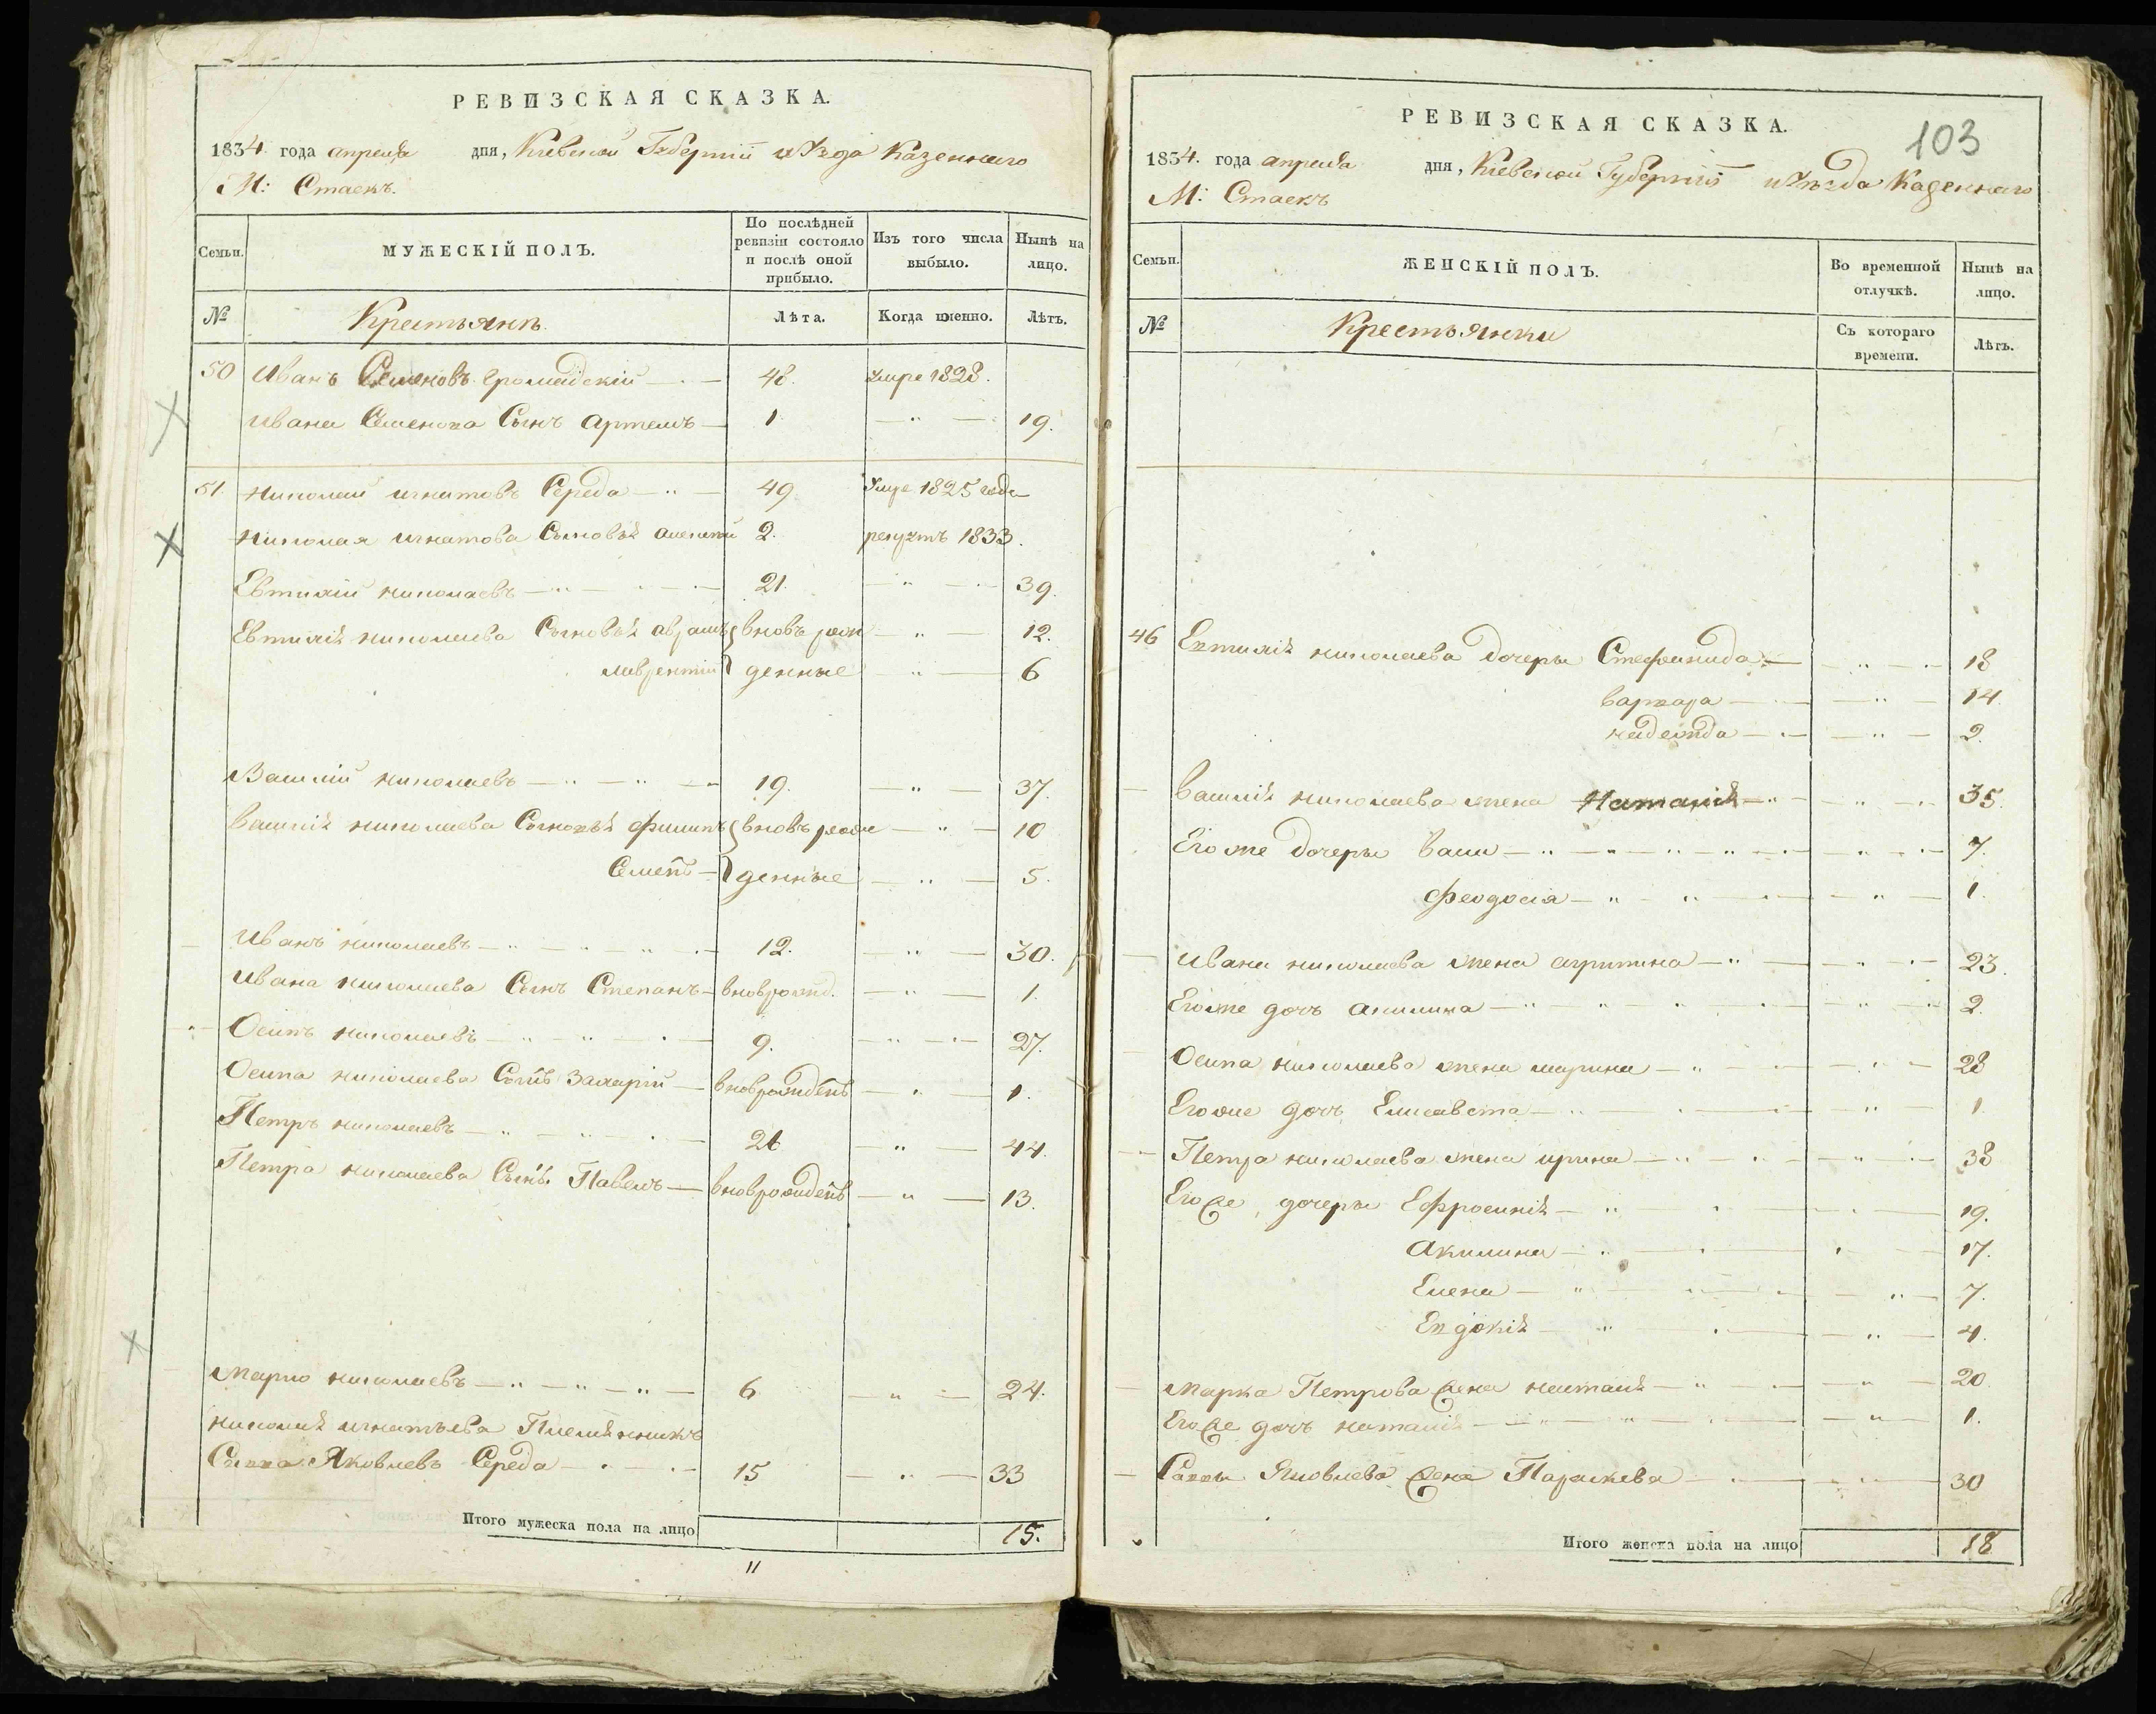 РЕВИЗСКАЯ СКАЗКА.
1834 года апреля дня, Кіевской Губерніи и уѣзда Казеннаго
М: Стаекъ.
Семьи.
МУЖЕСКІЙ ПОЛЪ.
По послѣдней ревизіи состояло и послѣ оной прибыло.
Изъ того числа выбыло.
Нынѣ на лицо.
№
Крестьянѣ
Лѣта.
Когда именно.
Лѣтъ.
50 Иванъ Семеновъ Громадскій 48. умре 1828.
Ивана Семенова Сынъ Артемъ 1 19.
51. Николай игнатовъ Середа 49. Умре 1825 года
Николая игнатова Сыновья алексей 2. рекрутъ 1833.
Евтихій николаевъ 21. 39.
Евтихія николаева Сыновья аврамъ вновь рож 12.
лаврентій денные 6
Василій николаевъ 19. 37.
Василія николаева Сыновья филипъ вновь рож 10
Семенъ денные 5.
Иванъ николаевъ 12. 30.
Ивана николаева Сынъ Степанъ вноврожд. 1.
Осипъ николаевъ 9. 27.
Осипа николаева Сынъ Захарій вноврожденъ 1.
Петръ николаевъ 26 44.
Петра николаева Сынъ Павелъ вноврожденъ 13.
Марко николаевъ 6 24.
николая игнатьева Племянникъ
Савва Яковлевъ Середа 15 33
Итого мужеска пола на лицо 15.
11
103
РЕВИЗСКАЯ СКАЗКА.
1834. года апреля дня, Кіевской Губерніи и уѣзда Казеннаго
М: Стаекъ
Семьи.
ЖЕНСКІЙ ПОЛЪ.
Во временной отлучкѣ.
Нынѣ на лицо.
№
Крестьянки
Съ котораго времени.
Лѣтъ.
46 Евтихія николаева дочеры Стефанида 18
варвара 14.
надежда 2.
Василія николаева жена Наталія 35.
Его же дочеры 7.
феодосія 1.
Ивана николаева жена агрипина 23.
Его же дочь акилина 2.
Осипа николаева жена марина 28
Его же дочь Елисавета 1.
Петра николаева жена ирина 38
Его же дочеры Ефросинія 19.
Акилина 17.
Елена 7.
Евдокія 4.
Марка Петрова жена наталія 20
Его же дочь наталія 1.
Саввы Яковлева жена Параскева 30
Итого женска пола на лицо 18